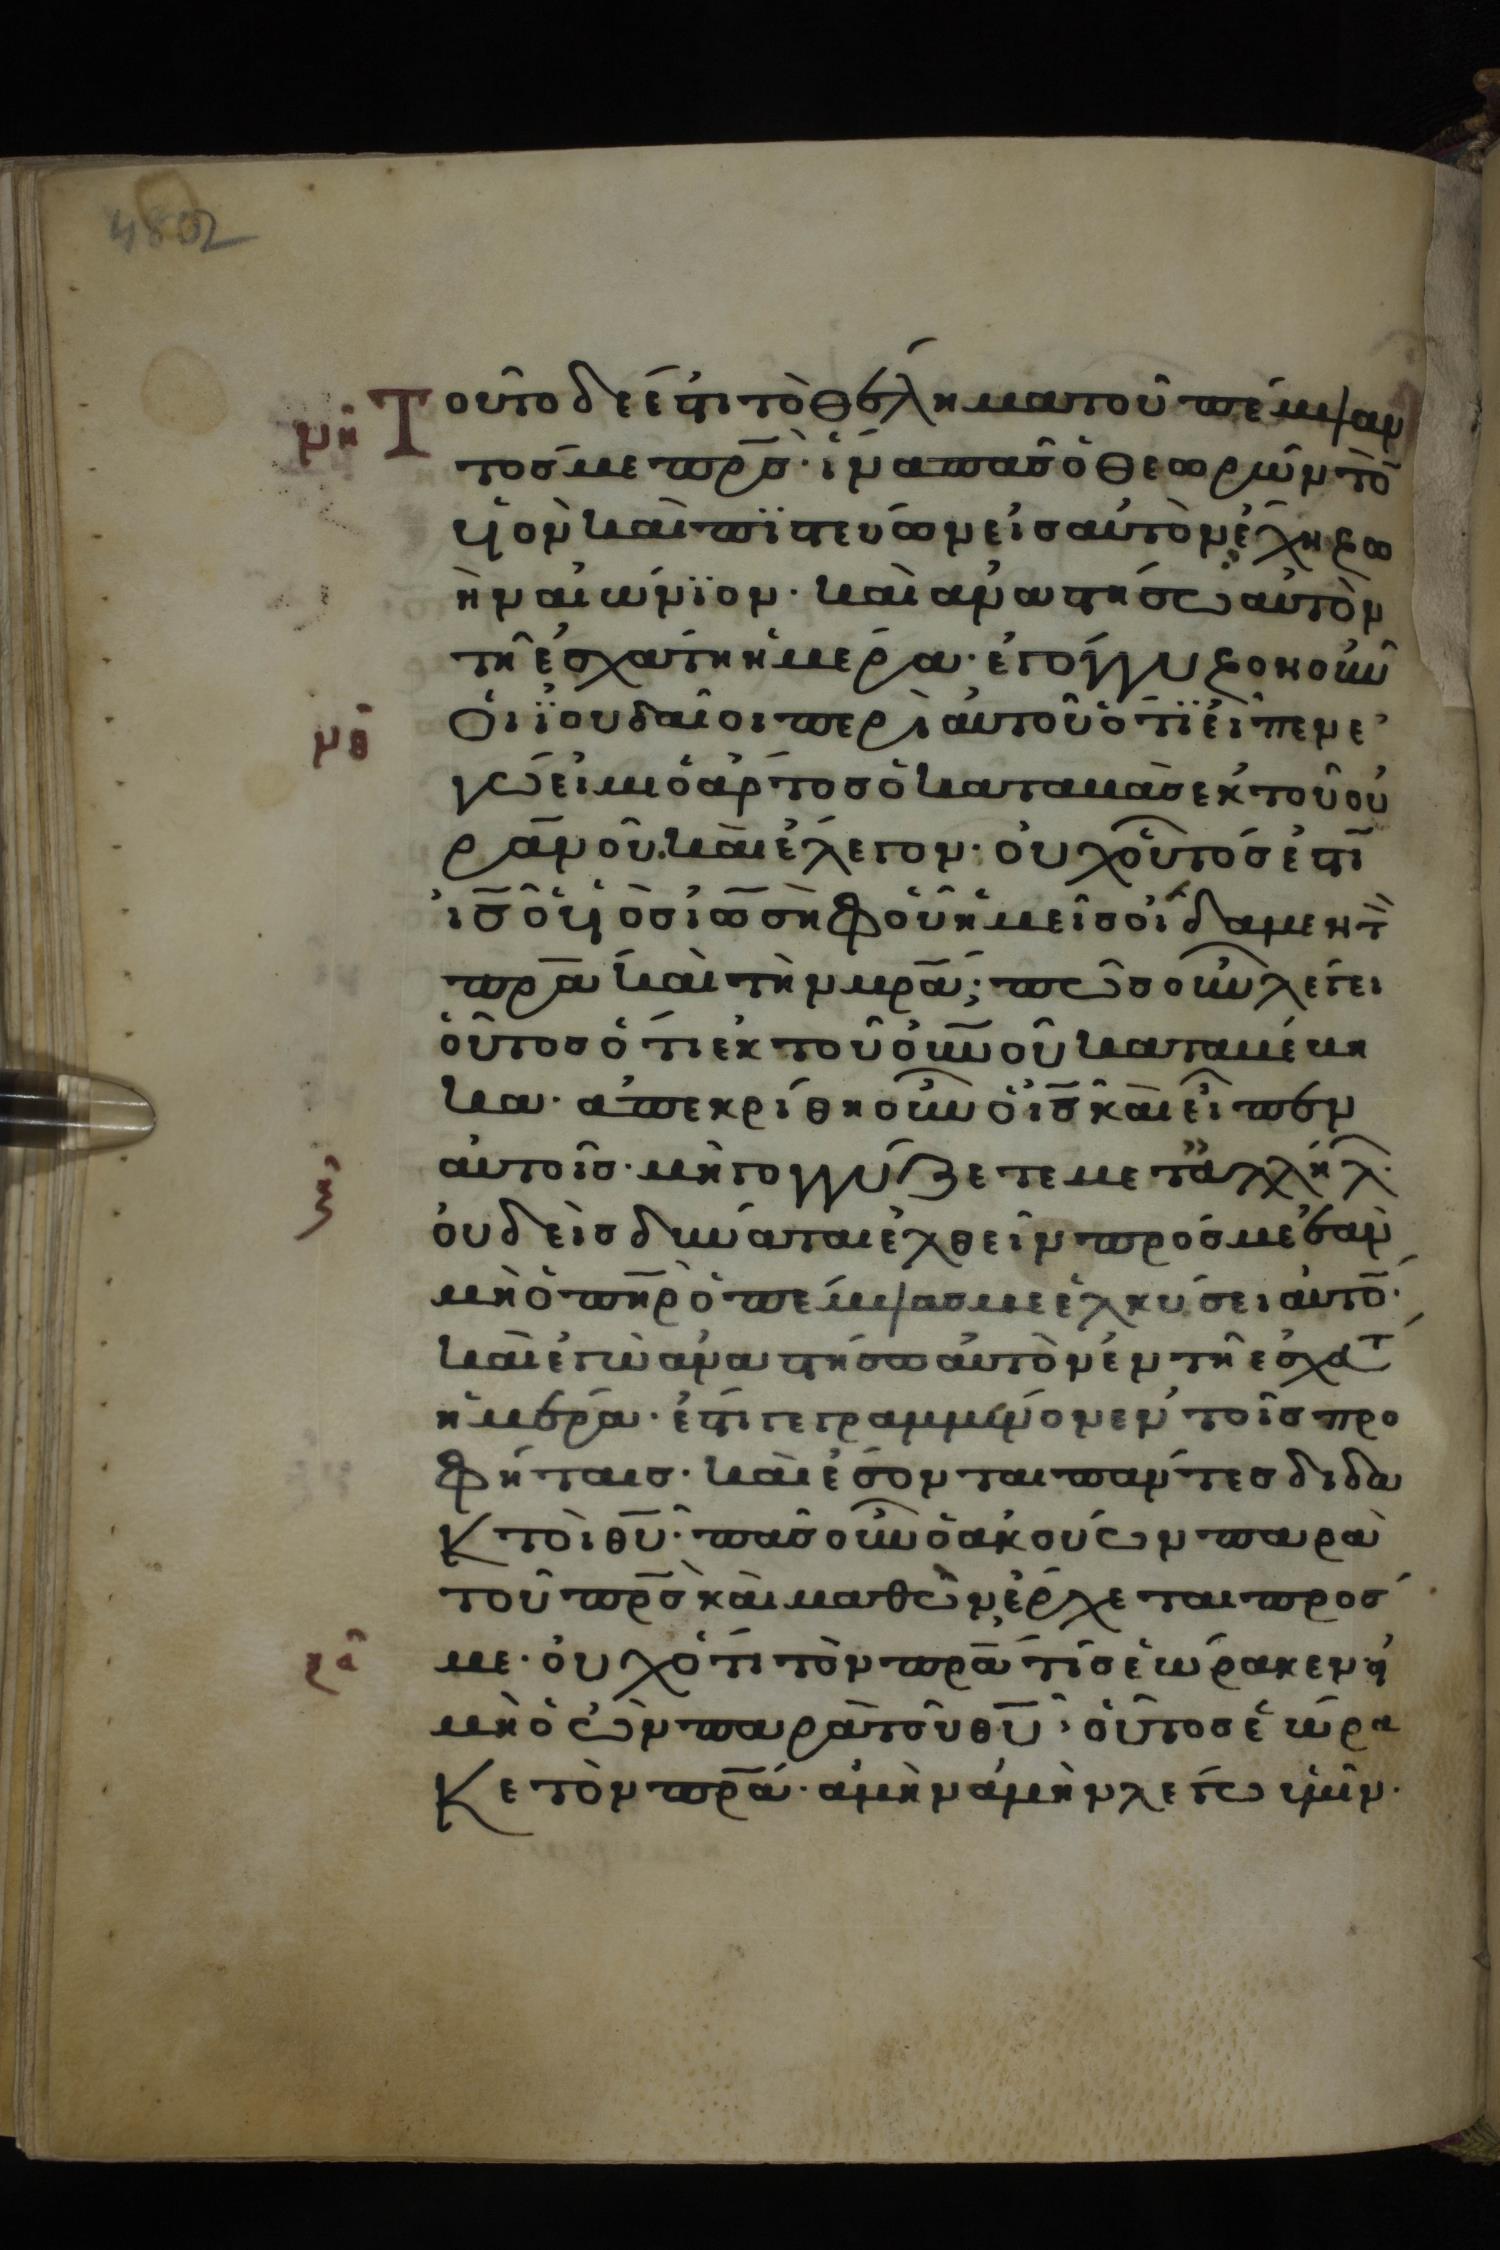 4802
μη Τοῦτο δέ ἐστι τὸ θέλημα τοῦ πέμψαν
τός με πρ̅ς· ἵνα πᾶς ὁ θεωρῶν το̅
υἱὸν καὶ πϊστεύων εἰς αὐτὸν ἔχη ζω
ὴν αἰώνϊον· καὶ ἀναστήσω αὐτὸν
τῆ ἐσχάτη ἡμέρα· ἐγόγγυζον οὖν
μθ οἱ ϊουδαῖοι περὶ αὐτοῦ ὅτϊ εἶπεν ἐ
γώ εἰμι ὁ ἄρτος ὁ καταβὰς ἐκ τοῦ οὐ
ρανοῦ. καὶ ἔλεγον· οὐχ οὗτός ἐστι
ι̅ς̅ ὁ υἱὸς ἰωσὴφ οὗ ἡμεῖς οἴδαμεν τ
πρ̅α καὶ τὴν μρ̅α; πῶς οὖν λέγει
οὗτος ὅτι ἐκ τοῦ ου̅νοῦ καταβέβη
κα· ἀπεκρίθη οὖν ὁ ι̅ς̅ καὶ εἶπεν
ν αὐτοῖς· μὴ γογγύζετε μετ ἀλλήλ.
οὐδεὶς δύναται ἐλθεῖν πρός με ἐὰν
μὴ ὁ πη̅ρ ὁ πέμψας με ἑλκύσει αὐτό̅·
καὶ ἐγὼ ἀναστήσω αὐτὸν ἐν τῆ ἐσχάτ
ἡμέρα· ἔστι γεγραμμένον ἐν τοῖς προ
φήταις· καὶ ἔσονται πάντες διδα
κτοὶ θ̅υ̅· πᾶς οὖν ὁ ἀκούων παρὰ
τοῦ πρ̅ς καὶ μαθὼν ἔρχεται πρός
να με· οὐχ ὅτι τὸν πρ̅α τίς ἑώρακεν εἰ
μὴ ὁ ὢν παρὰ τοῦ θ̅υ̅, οὗτος ἑώρα
κε τὸν πρ̅α· ἀμὴν ἀμὴν λέγω ὑμῖν·